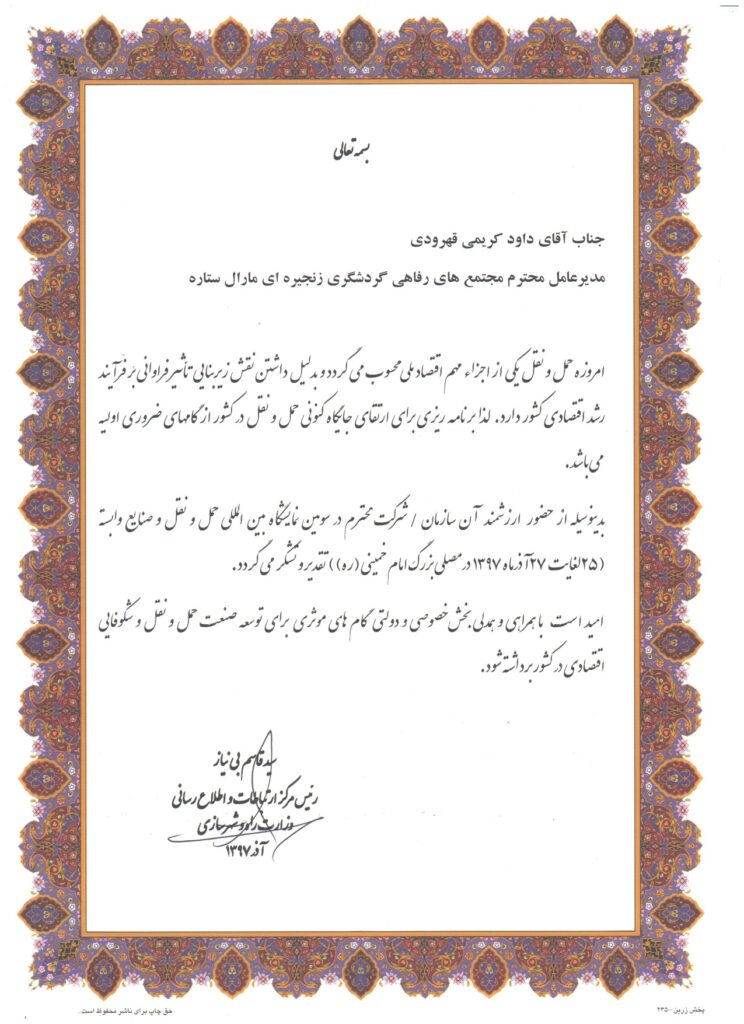 بسمه تعالی
جناب آقای داود کریمی قهرودی
مدیرعامل محترم مجتمع های رفاهی گردشگری زنجیره ای مارال ستاره
امروزه حمل و نقل یکی از اجزاء مهم اقتصاد ملی محسوب می گردد و بدلیل داشتن نقش زیربنایی تأثیر فراوانی بر فرآیند
رشد اقتصادی کشور دارد. لذا برنامه ریزی برای ارتقای جایگاه کنونی حمل و نقل در کشور از گامهای ضروری اولیه
می باشد.
بدینوسیله از حضور ارزشمند آن سازمان / شرکت محترم در سومین نمایشگاه بین المللی حمل و نقل و صنایع وابسته
(۲۵ لغایت ۲۷ آذرماه ۱۳۹۷ در مصلی بزرگ امام خمینی (ره)) تقدیر و تشکر می گردد.
امید است با همراهی و همدلی بخش خصوصی و دولتی گام های موثری برای توسعه صنعت حمل و نقل و شکوفایی
اقتصادی در کشور برداشته شود.
سید قاسم بی نیاز
رئیس مرکز ارتباطات و اطلاع رسانی
وزارت راه و شهرسازی
آذر ۱۳۹۷
پخش زرین ۲۳۵۰۰
حق چاپ برای ناشر محفوظ است.